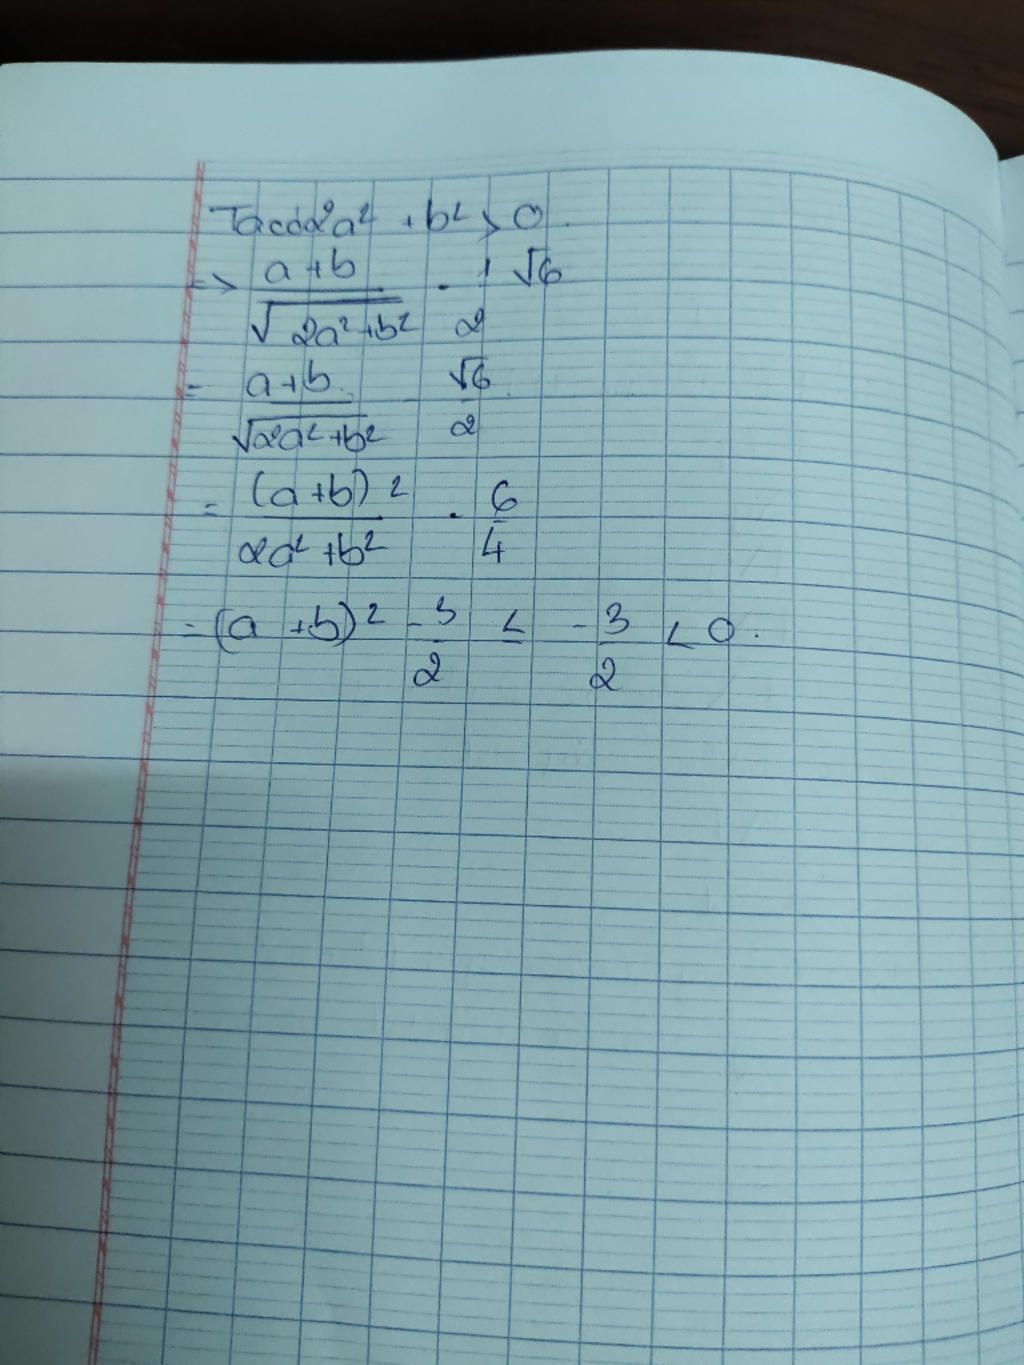 Ta có 2a² + b² > 0.
=> a+b / √2a²+b² - 1/2 √6
= a+b / √2a²+b² - √6/2
= (a+b)² / 2a²+b² - 6/4
= (a+b)² - 3/2 ≤ -3/2 < 0.